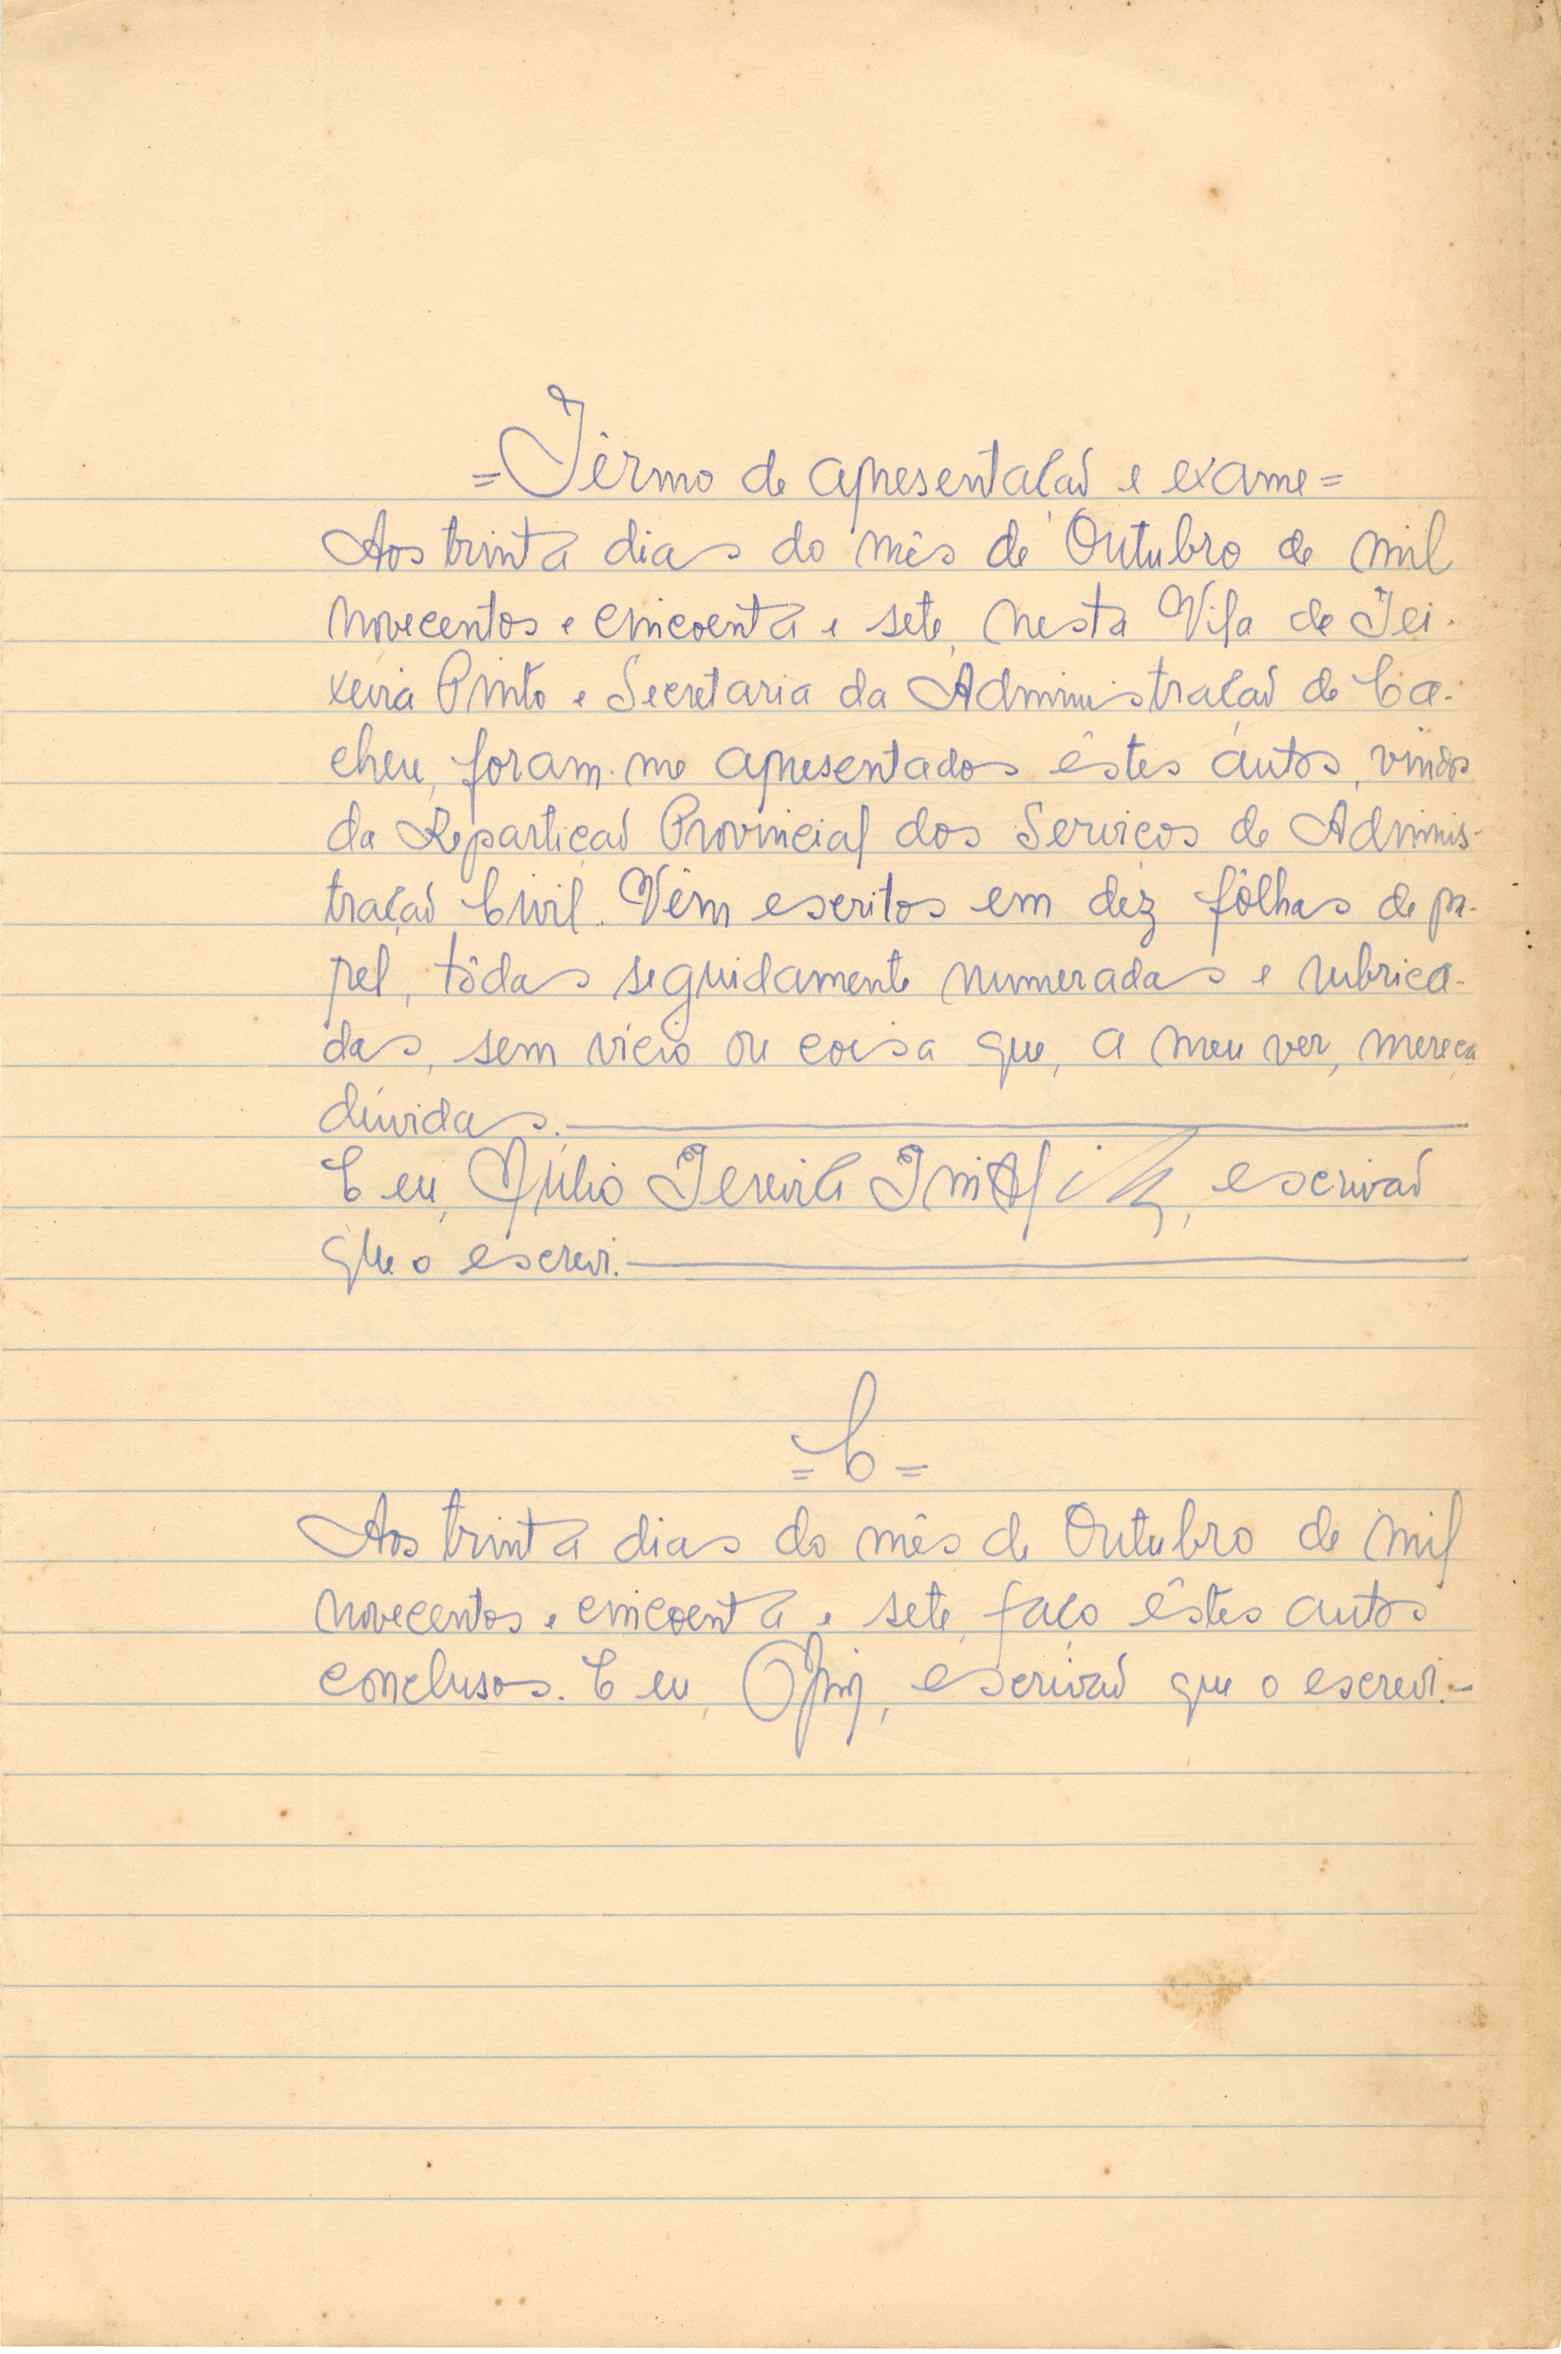 = Têrmo de apresentação e exame =
Aos trinta dias do mês de Outubro de mil
novecentos e cincoenta e sete, nesta Vila de Tei-
xeira Pinto e Secretaria da Administração de Ca-
cheu, foram-me apresentados êstes autos, vindos
da Repartição Provincial dos Serviços de Adminis-
tração Civil. Vêm escritos em dez fôlhas de pa-
pel, tôdas seguidamente numeradas e rubrica-
das, sem vício ou coisa que, a meu ver, mereça
dúvidas.
E eu, Júlio, escrivão
que o escrevi.
= C =
Aos trinta dias do mês de Outubro de mil
novecentos e cincoenta e sete, faço êstes autos
conclusos. E eu, escrivão que o escrevi.-